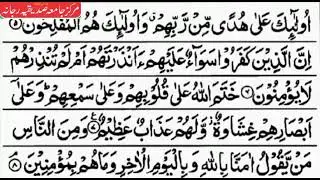 مرکز جامعہ صدیقیہ رحانہ
أُولَٰئِكَ عَلَىٰ هُدًى مِّن رَّبِّهِمْ ۖ وَأُولَٰئِكَ هُمُ الْمُفْلِحُونَ ۝٥
إِنَّ الَّذِينَ كَفَرُوا سَوَاءٌ عَلَيْهِمْ ءَأَنذَرْتَهُمْ أَمْ لَمْ تُنذِرْهُمْ
لَا يُؤْمِنُونَ ۝٦ خَتَمَ اللَّهُ عَلَىٰ قُلُوبِهِمْ وَعَلَىٰ سَمْعِهِمْ ۖ وَعَلَىٰ
أَبْصَارِهِمْ غِشَاوَةٌ ۖ وَلَهُمْ عَذَابٌ عَظِيمٌ ۝٧ وَمِنَ النَّاسِ
مَن يَقُولُ آمَنَّا بِاللَّهِ وَبِالْيَوْمِ الْآخِرِ وَمَا هُم بِمُؤْمِنِينَ ۝٨